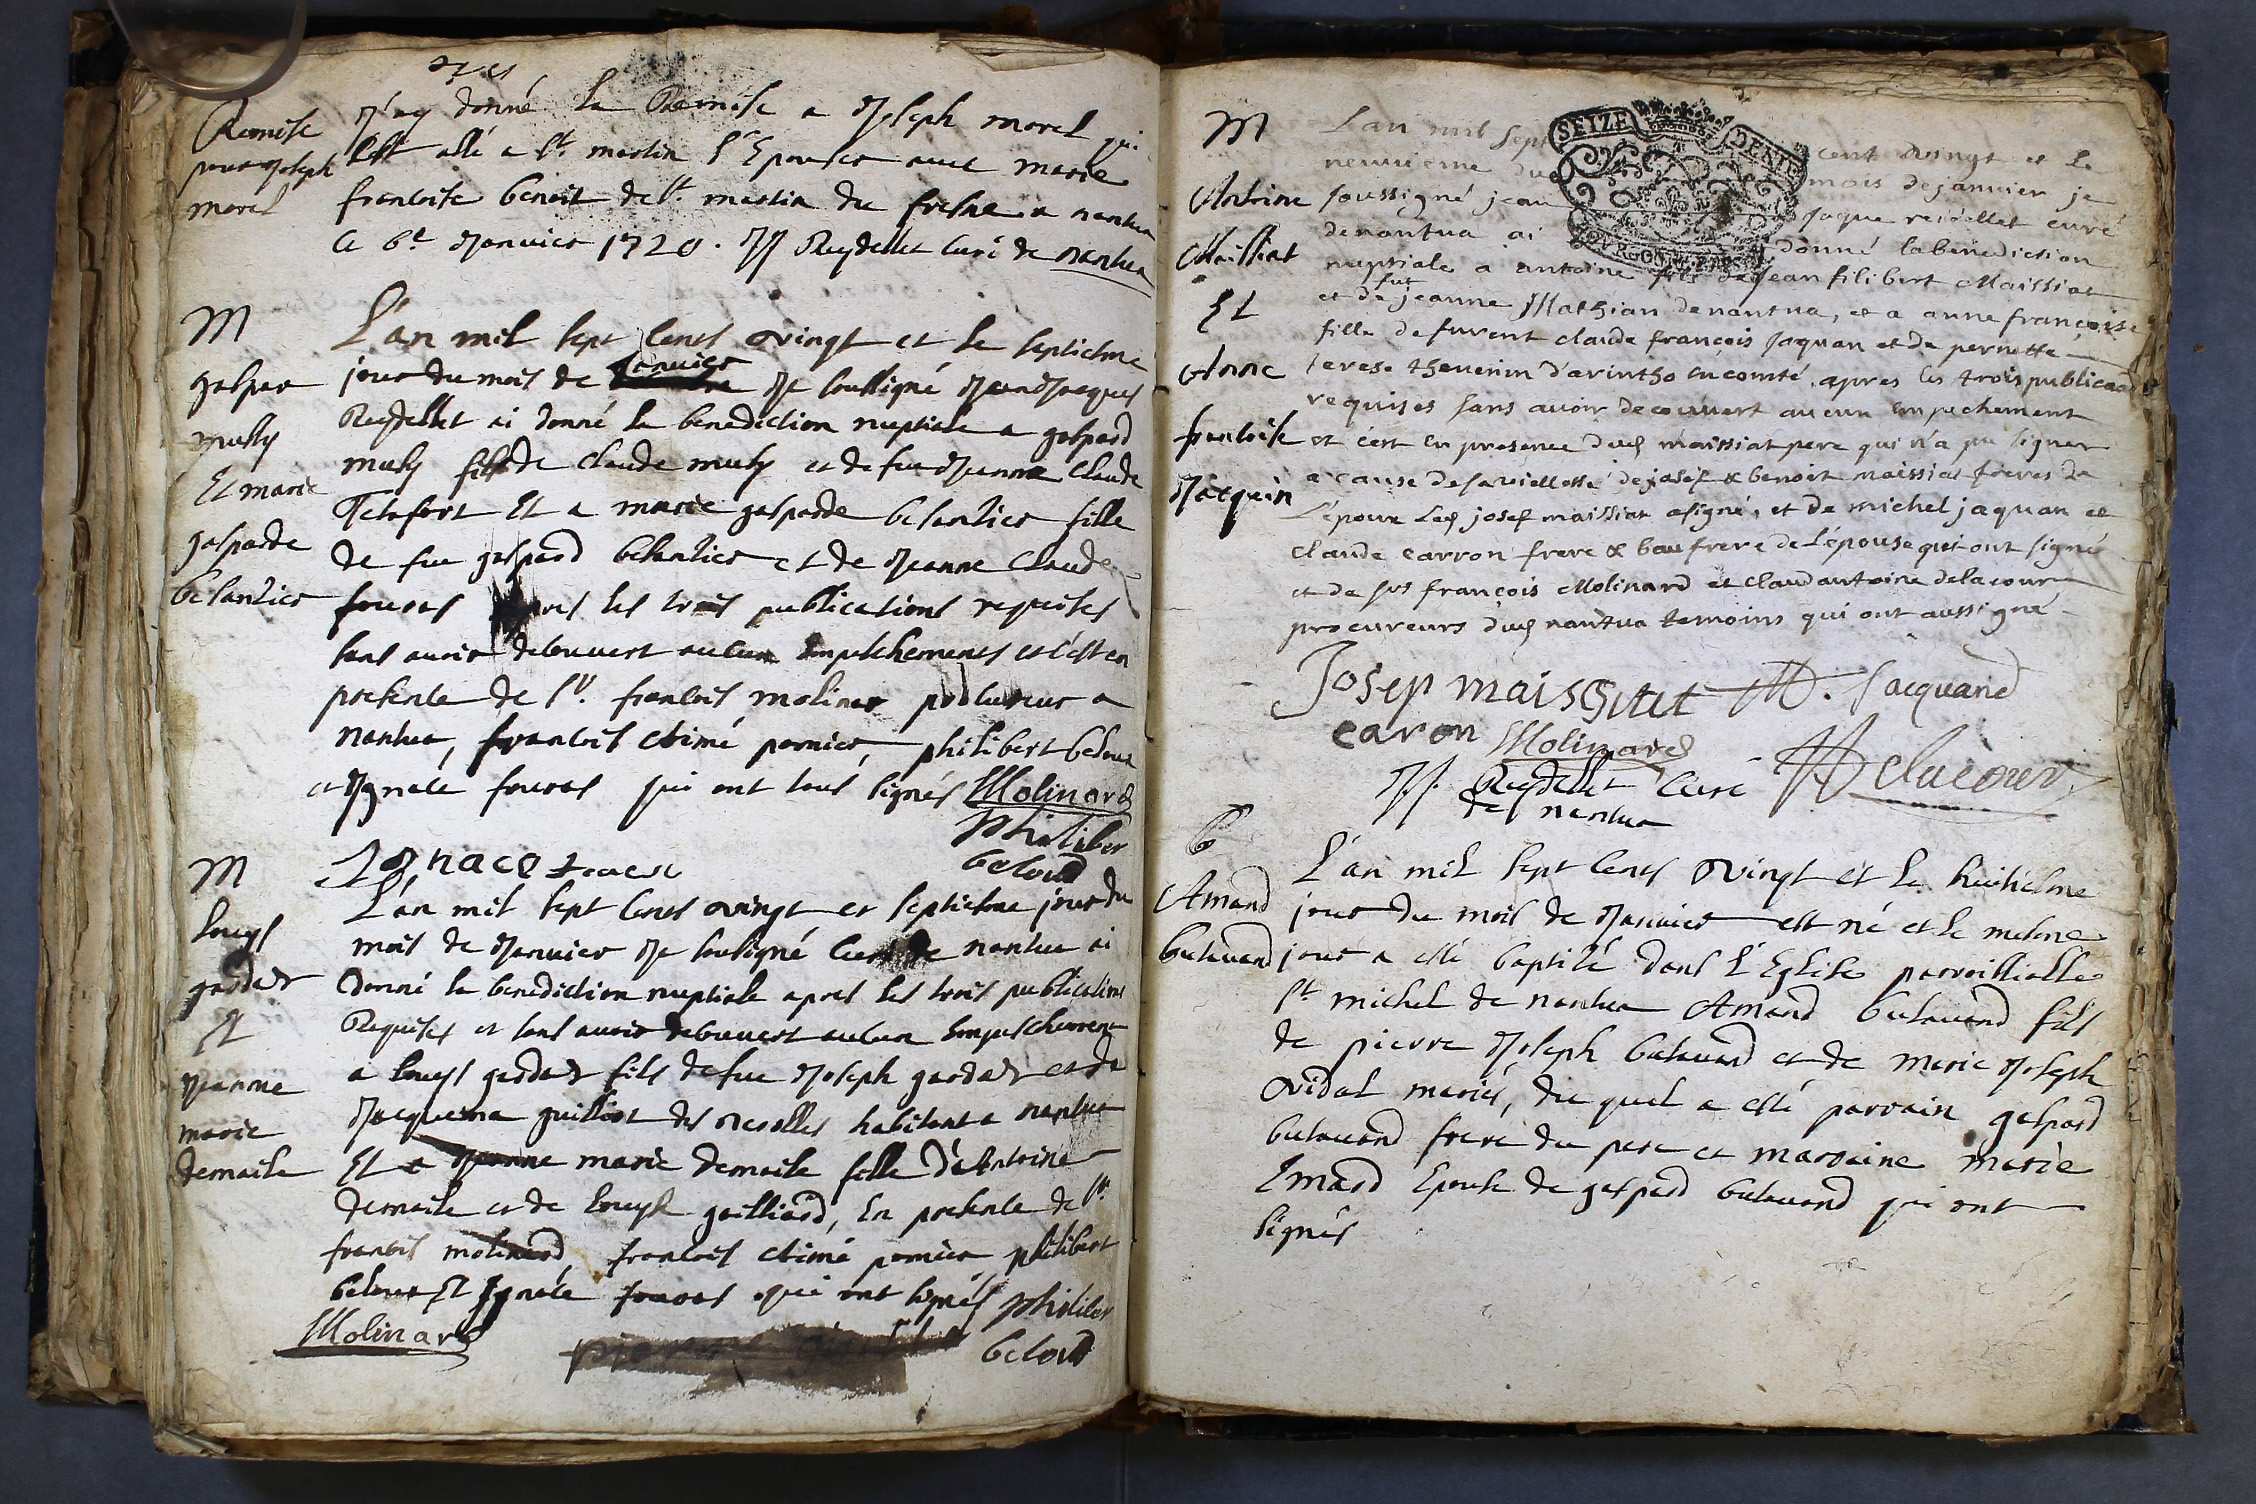 Remise
pour Joseph
morel
J'ay donné la Remise a Joseph morel qui
s'est allé a St. martin s'Epouser avec marie
francoise benoit de St. martin du fresne a nantua
ce 6e Janvier 1720. JJ Reydellet Curé de nantua
M
gaspar
muly
Et marie
gasparde
besantier
L'an mil sept Cents vingt et le septiesme
jour du mois de Janvier Je soussigné Jean Jacques
Reydellet ai donné la benediction nuptiale a gaspard
muly fils de Claude muly et de fue Jeanne Claude
Telafort Et a marie gasparde besantier fille
de fue gaspard besantier et de Jeanne Claude
fouras apres les trois publications requises
sans avoir decouvert aucun Empeschements et c'est en
presence de Sr. francois molinar procureur a
nantua, francois Aimé pernier, philibert beloud
et Ignace fouras qui ont tous signés Molinard
philiber
beloud
Ignace
M
Louys
gardet
Et
Jeanne
marie
demaile
L'an mil sept Cents vingt et septiesme jour du
mois de Janvier Je sousigné Curé de nantua ai
Donné la benediction nuptiale apres les trois publications
Requises et sans avoir decouvert aucun Empeschement
a Louys gardet fils de fue Joseph gardet et de
Jacquema guilliot des nerolles habitant a nantua
Et a Jeanne marie demaile fille d'Antoine
demaile et de Louyse gailliard, En presence de Sr.
francois molinard francois Aimé pernier philibert
beloud Et Ignace fouras qui ont signés philiber
Molinard
beloud
M
Antoine
Maissiat
Et
Anne
francoise
Jacquin
SEIZE DENIE
L'an mil sept cent vingt et le
neuvieme du mois de janvier je
soussigné jean jaque reidellet curé
de nantua ai donné la benediction
nuptiale a antoine fils de jean filibert Maissiat
fut
et de jeanne Mathian de nantua, et a anne françoise
fille de furent claude françois jaquan et de pernette
terese thevenin d'arintho en comté, apres les trois publicaõns
requises sans avoir decouvert aucun empechement
et c'est en presence dud maissiat pere qui n'a pu signer
a cause de sa viellesse de josef & benoit maissiat freres de
L'epoux Led josef maissiat a signé, et de michel jaquan et
claude carron frere & beaufrere de L'epouse qui ont signés
et de srs françois Molinard et claud antoine delacour
procureurs dud nantua temoins qui ont aussi signé
Josep maissiat M. Jacquand
caron Molinard
JJ. Reydellet Curé Delacour
de nantua
B
Amand
butavand
L'an mil sept Cents vingt et le huitiesme
jour du mois de Janvier est né et le mesme
jour a esté baptisé dans l'Eglise parroissialle
St. michel de nantua Amand butavand fils
de pierre Joseph butavand et de marie Joseph
vidal mariés, du quel a esté parrain gaspard
butavand frere du pere et marraine marie
Emard Epouse de gaspard butavand qui ont
signés